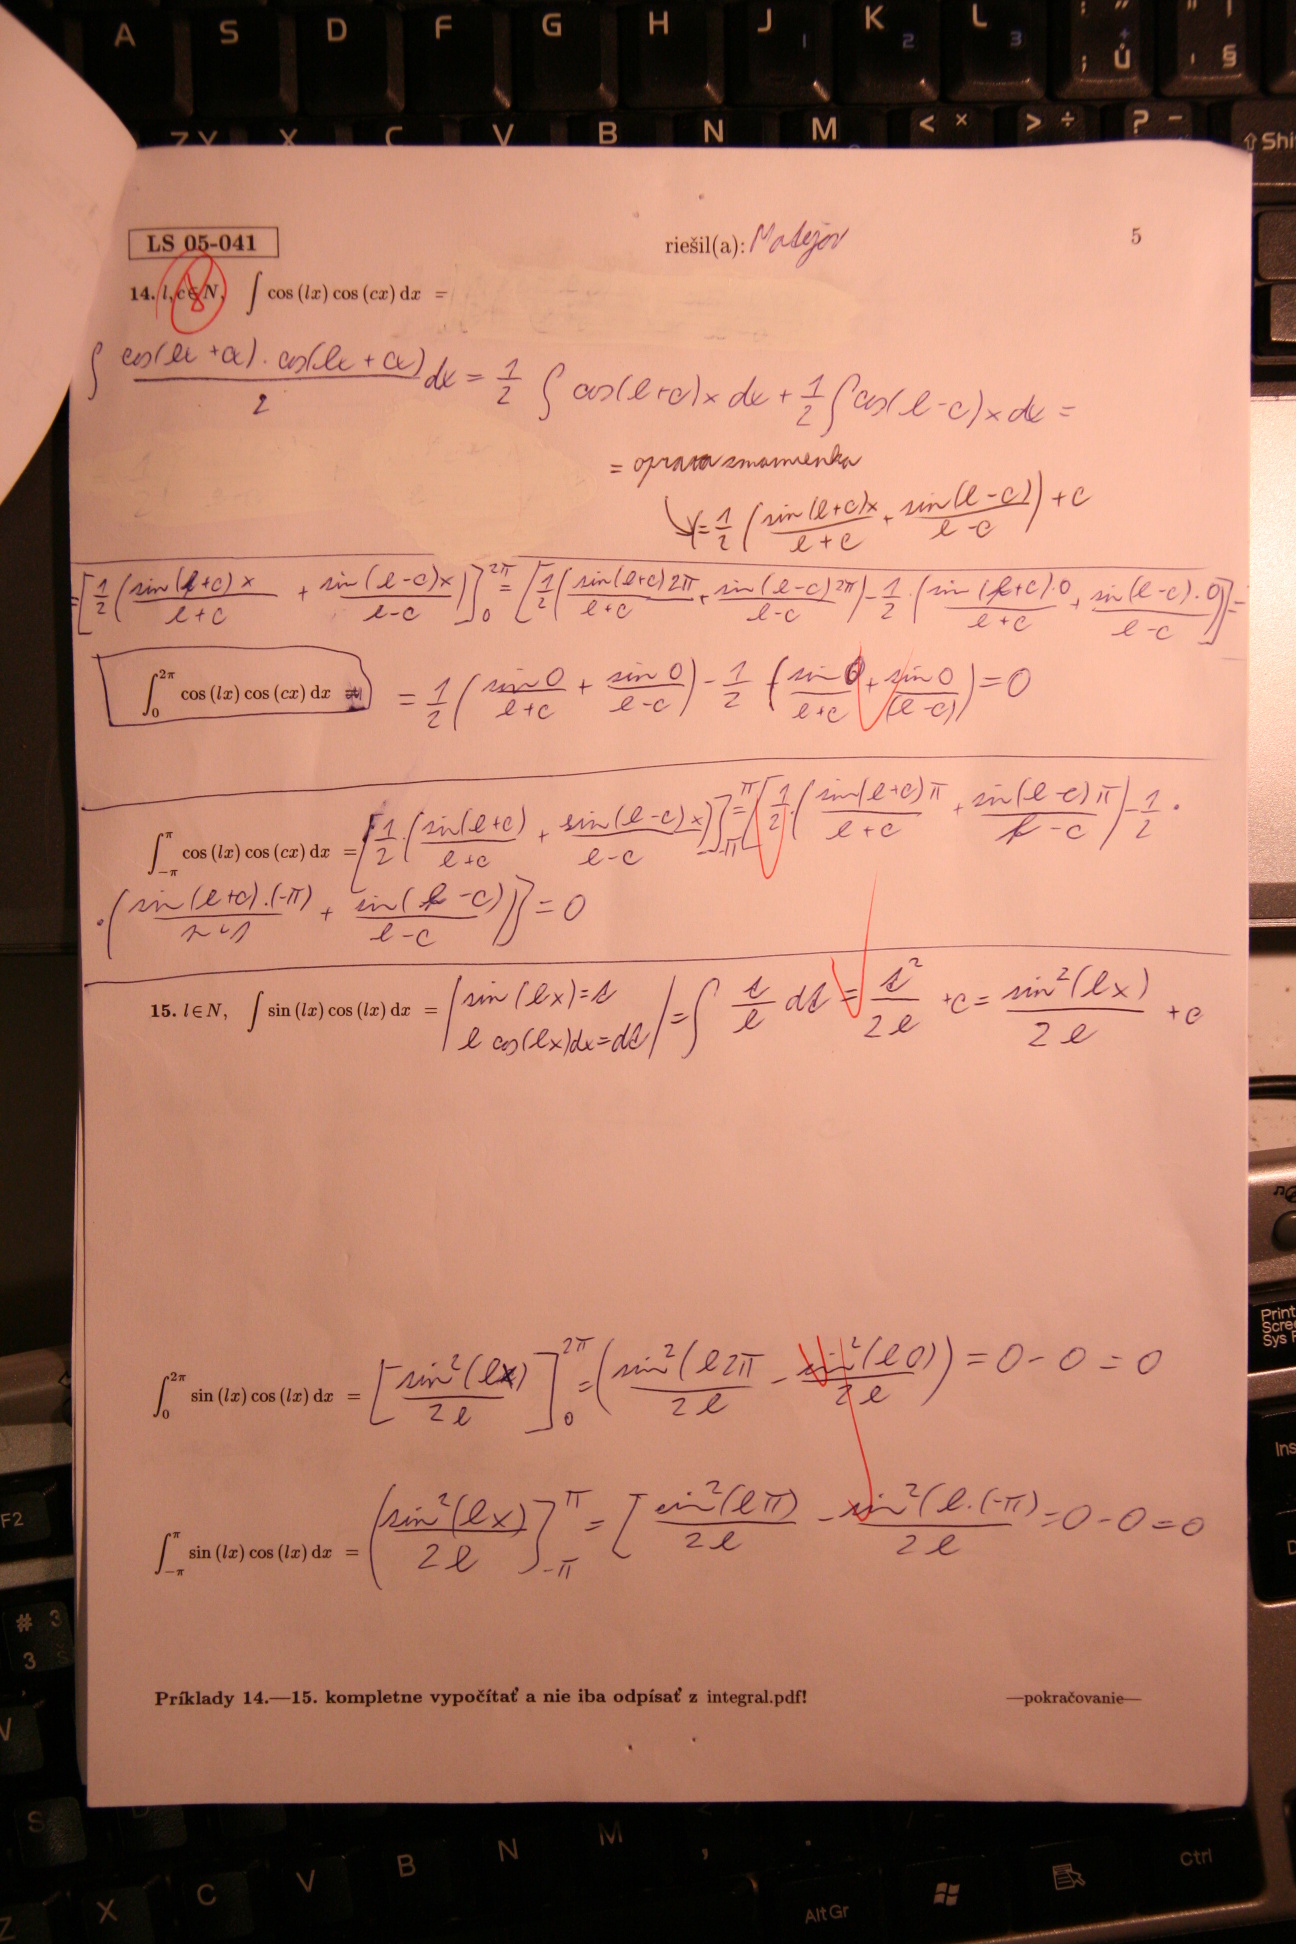 A S D F G H J K L
1 2 3 ; ů ! §
ZY X C V B N M < × > ÷ ? −
⇧ Shi
LS 05-041
riešil(a): Matejov
5
14. l, c∈N, ∫ cos (lx) cos (cx) dx =
8
∫ cos(lx + cx) · cos(lx + cx) / 2 dx = 1/2 ∫ cos(l+c)x dx + 1/2 ∫ cos(l−c)x dx =
= oprava znamienka
= 1/2 ( sin(l+c)x / l+c + sin(l−c) / l−c ) + c
= [ 1/2 ( sin(l+c)x / l+c + sin(l−c)x / l−c ) ]₀^2π = [ 1/2 ( sin(l+c)2π / l+c + sin(l−c)2π / l−c ) − 1/2 · ( sin(l+c)·0 / l+c + sin(l−c)·0 / l−c ) ] =
∫₀^2π cos (lx) cos (cx) dx = = 1/2 ( sin 0 / l+c + sin 0 / l−c ) − 1/2 ( sin 0 / l+c + sin 0 / (l−c) ) = 0
∫₋π^π cos (lx) cos (cx) dx = [ 1/2 · ( sin(l+c) / l+c + sin(l−c)x / l−c ) ]₋π^π = [ 1/2 · ( sin(l+c)π / l+c + sin(l−c)π / l−c ) − 1/2 ·
· ( sin(l+c)·(−π) / + sin(l−c) / l−c ) ] = 0
15. l∈N, ∫ sin (lx) cos (lx) dx = | sin(lx) = t
l cos(lx)dx = dt | = ∫ t/l dt = t²/2l + c = sin²(lx) / 2l + c
∫₀^2π sin (lx) cos (lx) dx = [ sin²(lx) / 2l ]₀^2π = ( sin²(l2π / 2l − sin²(l0) / 2l ) = 0 − 0 = 0
∫₋π^π sin (lx) cos (lx) dx = ( sin²(lx) / 2l ]₋π^π = [ sin²(lπ) / 2l − sin²(l·(−π) / 2l = 0 − 0 = 0
Príklady 14.—15. kompletne vypočítať a nie iba odpísať z integral.pdf!
—pokračovanie—
Print
Scre
Sys F
Ins
F2
# 3
3 S
V
S D N M , .
X C V B
Alt Gr
Ctrl